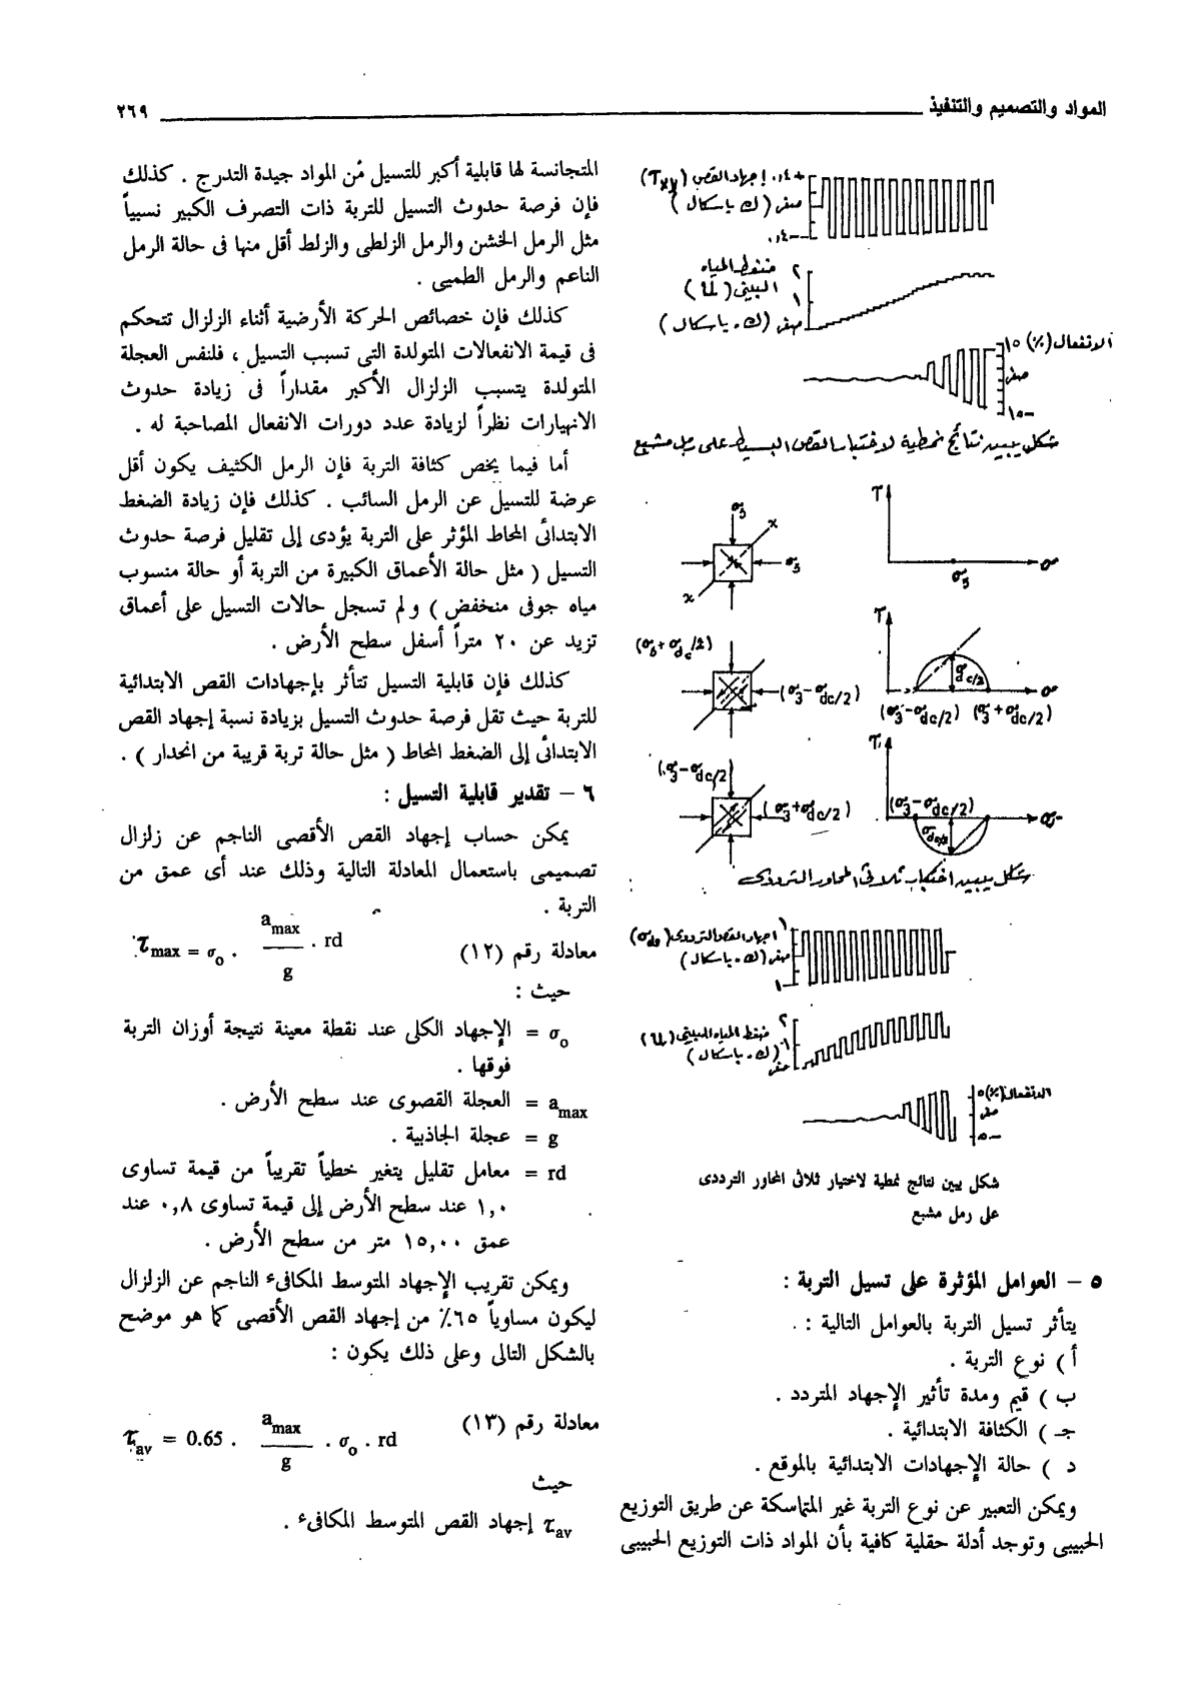 المواد والتصميم والتنفيذ
٢٦٩
+٠,٤ إجهاد القص (τxy)
صفر (ك باسكال)
-٠,٤
٢ ضغط المياه
١ البينى (u)
صفر (ك . باسكال)
الانفعال (٪) ١٥
صفر
-١٥
شكل يبين نتائج نمطية لاختبار القص البسيط على رمل مشبع
τ
σ3
x
σ3
σ
σ3
x
τ
(σ3+σdc/2)
σdc/2
σ
(σ3-σdc/2)
(σ3-σdc/2) (σ3+σdc/2)
τ
(σ3-σdc/2)
(σ3-σdc/2)
(σ3+σdc/2)
σ
σdc/2
شكل يبين اختبار ثلاثى المحاور الترددى
١ اجهاد القص الترددى (σdc)
صفر (ك . باسكال)
-١
٢ ضغط المياه البينى (u)
١ (ك . باسكال)
صفر
الانفعال (٪) ٥
صفر
-٥
شكل يبين نتائج نمطية لاختيار ثلاثى المحاور الترددى
على رمل مشبع
٥ – العوامل المؤثرة على تسيل التربة :
يتأثر تسيل التربة بالعوامل التالية :
أ ) نوع التربة .
ب ) قيم ومدة تأثير الإجهاد المتردد .
جـ ) الكثافة الابتدائية .
د ) حالة الإجهادات الابتدائية بالموقع .
ويمكن التعبير عن نوع التربة غير المتماسكة عن طريق التوزيع
الحبيبى وتوجد أدلة حقلية كافية بأن المواد ذات التوزيع الحبيبى
المتجانسة لها قابلية أكبر للتسيل من المواد جيدة التدرج . كذلك
فإن فرصة حدوث التسيل للتربة ذات التصرف الكبير نسبياً
مثل الرمل الخشن والرمل الزلطى والزلط أقل منها فى حالة الرمل
الناعم والرمل الطميى .
كذلك فإن خصائص الحركة الأرضية أثناء الزلزال تتحكم
فى قيمة الانفعالات المتولدة التى تسبب التسيل ، فلنفس العجلة
المتولدة يتسبب الزلزال الأكبر مقداراً فى زيادة حدوث
الانهيارات نظراً لزيادة عدد دورات الانفعال المصاحبة له .
أما فيما يخص كثافة التربة فإن الرمل الكثيف يكون أقل
عرضة للتسيل عن الرمل السائب . كذلك فإن زيادة الضغط
الابتدائى المحاط المؤثر على التربة يؤدى إلى تقليل فرصة حدوث
التسيل ( مثل حالة الأعماق الكبيرة من التربة أو حالة منسوب
مياه جوفى منخفض ) ولم تسجل حالات التسيل على أعماق
تزيد عن ٢٠ متراً أسفل سطح الأرض .
كذلك فإن قابلية التسيل تتأثر بإجهادات القص الابتدائية
للتربة حيث تقل فرصة حدوث التسيل بزيادة نسبة إجهاد القص
الابتدائى إلى الضغط المحاط ( مثل حالة تربة قريبة من انحدار ) .
٦ – تقدير قابلية التسيل :
يمكن حساب إجهاد القص الأقصى الناجم عن زلزال
تصميمى باستعمال المعادلة التالية وذلك عند أى عمق من
التربة .
معادلة رقم (١٢) τmax = σo . amax / g . rd
حيث :
σo = الإجهاد الكلى عند نقطة معينة نتيجة أوزان التربة
فوقها .
amax = العجلة القصوى عند سطح الأرض .
g = عجلة الجاذبية .
rd = معامل تقليل يتغير خطياً تقريباً من قيمة تساوى
١,٠ عند سطح الأرض إلى قيمة تساوى ٠,٨ عند
عمق ١٥,٠٠ متر من سطح الأرض .
ويمكن تقريب الإجهاد المتوسط المكافىء الناجم عن الزلزال
ليكون مساوياً ٦٥٪ من إجهاد القص الأقصى كما هو موضح
بالشكل التالى وعلى ذلك يكون :
معادلة رقم (١٣) τav = 0.65 . amax / g . σo . rd
حيث
τav إجهاد القص المتوسط المكافىء .